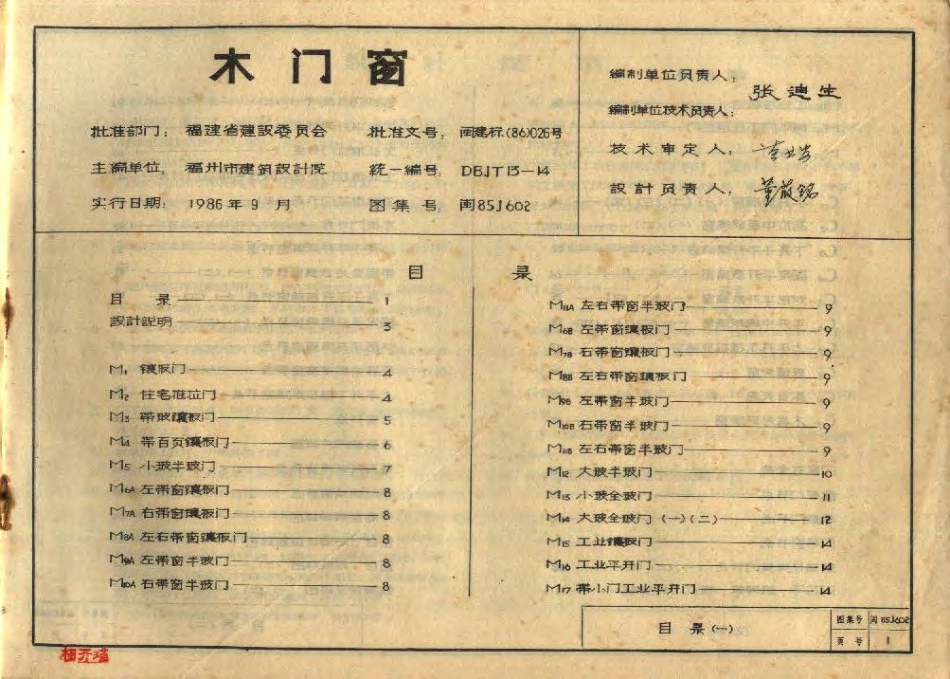 木门窗
批准部门： 福建省建設委员会 批准文号： 闽建标(86)026号
主编单位： 福州市建筑設計院 统一编号： DBJT13—14
实行日期： 1986年9月 图集号 闽85J602
编制单位负责人：
张迪生
编制单位技术负责人：
技术审定人：
設計负责人：
目 录
目 录 1
設計説明 3
M1 镶板门 4
M2 住宅推拉门 4
M3 带玻镶板门 5
M4 带百页镶板门 6
M5 小玻半玻门 7
M6A 左带窗镶板门 8
M7A 右带窗镶板门 8
M8A 左右带窗镶板门 8
M9A 左带窗半玻门 8
M10A 右带窗半玻门 8
M11A 左右带窗半玻门 9
M6B 左带窗镶板门 9
M7B 右带窗镶板门 9
M8B 左右带窗镶板门 9
M9B 左带窗半玻门 9
M10B 右带窗半玻门 9
M11B 左右带窗半玻门 9
M12 大玻半玻门 10
M13 小玻全玻门 11
M14 大玻全玻门(一)(二) 12
M15 工业镶板门 14
M16 工业平开门 14
M17 带小门工业平开门 14
目 录(一)
图集号 闽85J602
页号 1